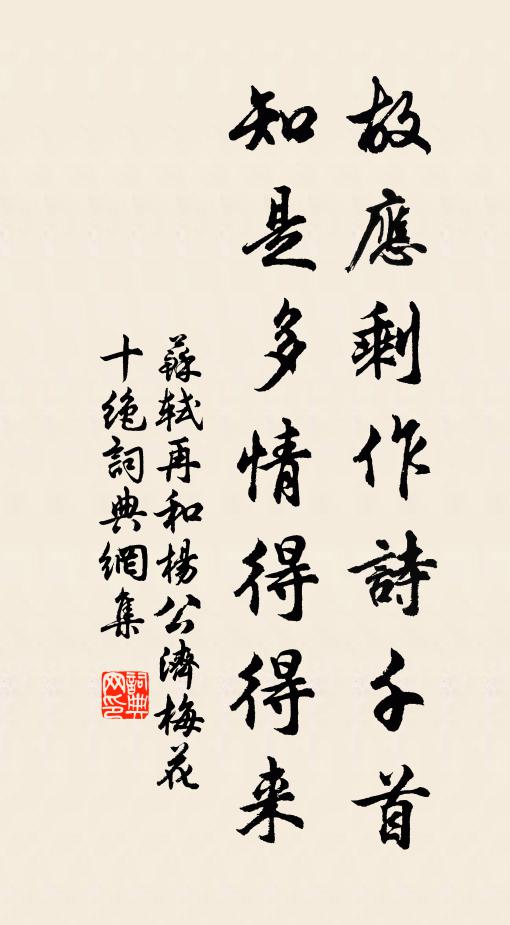 故應剩作詩千首
知是多情得得来
蘇軾再和楊公濟梅花
十絶詞典網集
詞典
网印